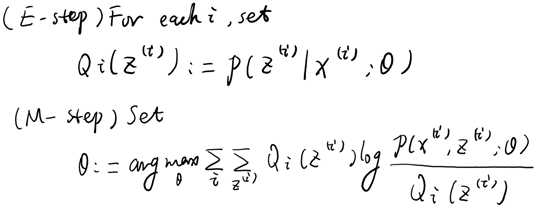 (E-step) For each i, set
Qi(z^(i)) := p(z^(i) | x^(i); θ)
(M-step) Set
θ := arg max_θ Σ_i Σ_z^(i) Qi(z^(i)) log p(x^(i), z^(i); θ) / Qi(z^(i))